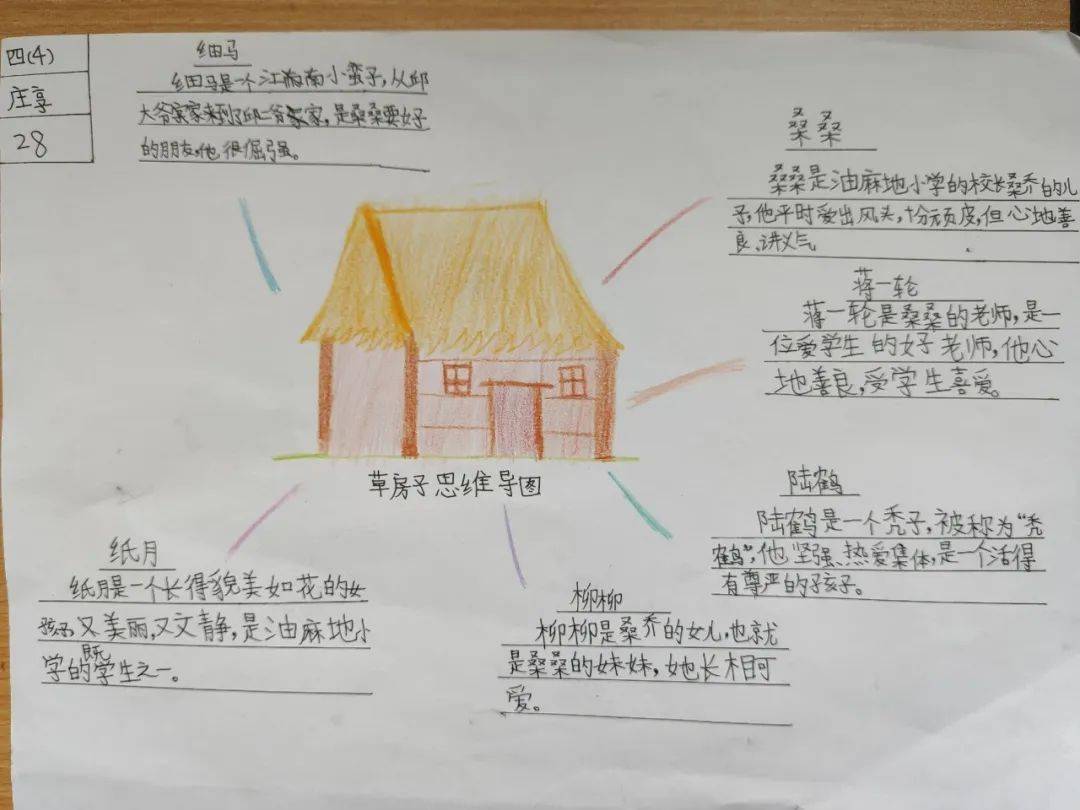 四(4)
庄享
28
细马
细马是一个江海南小蛮子,从邱
大爷家来到了邱二爷家,是桑桑要好
的朋友,他很倔强。
桑桑
桑桑是油麻地小学的校长桑乔的儿
子,他平时爱出风头,十分顽皮,但心地善
良、讲义气
蒋一轮
蒋一轮是桑桑的老师,是一
位爱学生的好老师,他心
地善良,受学生喜爱。
草房子思维导图
陆鹤
陆鹤是一个秃子,被称为“秃
鹤”,他坚强、热爱集体,是一个活得
有尊严的孩子。
纸月
纸月是一个长得貌美如花的女
孩子,又美丽,又文静,是油麻地小
学的既学生之一。
柳柳
柳柳是桑乔的女儿,也就
是桑桑的妹妹,她长相可
爱。